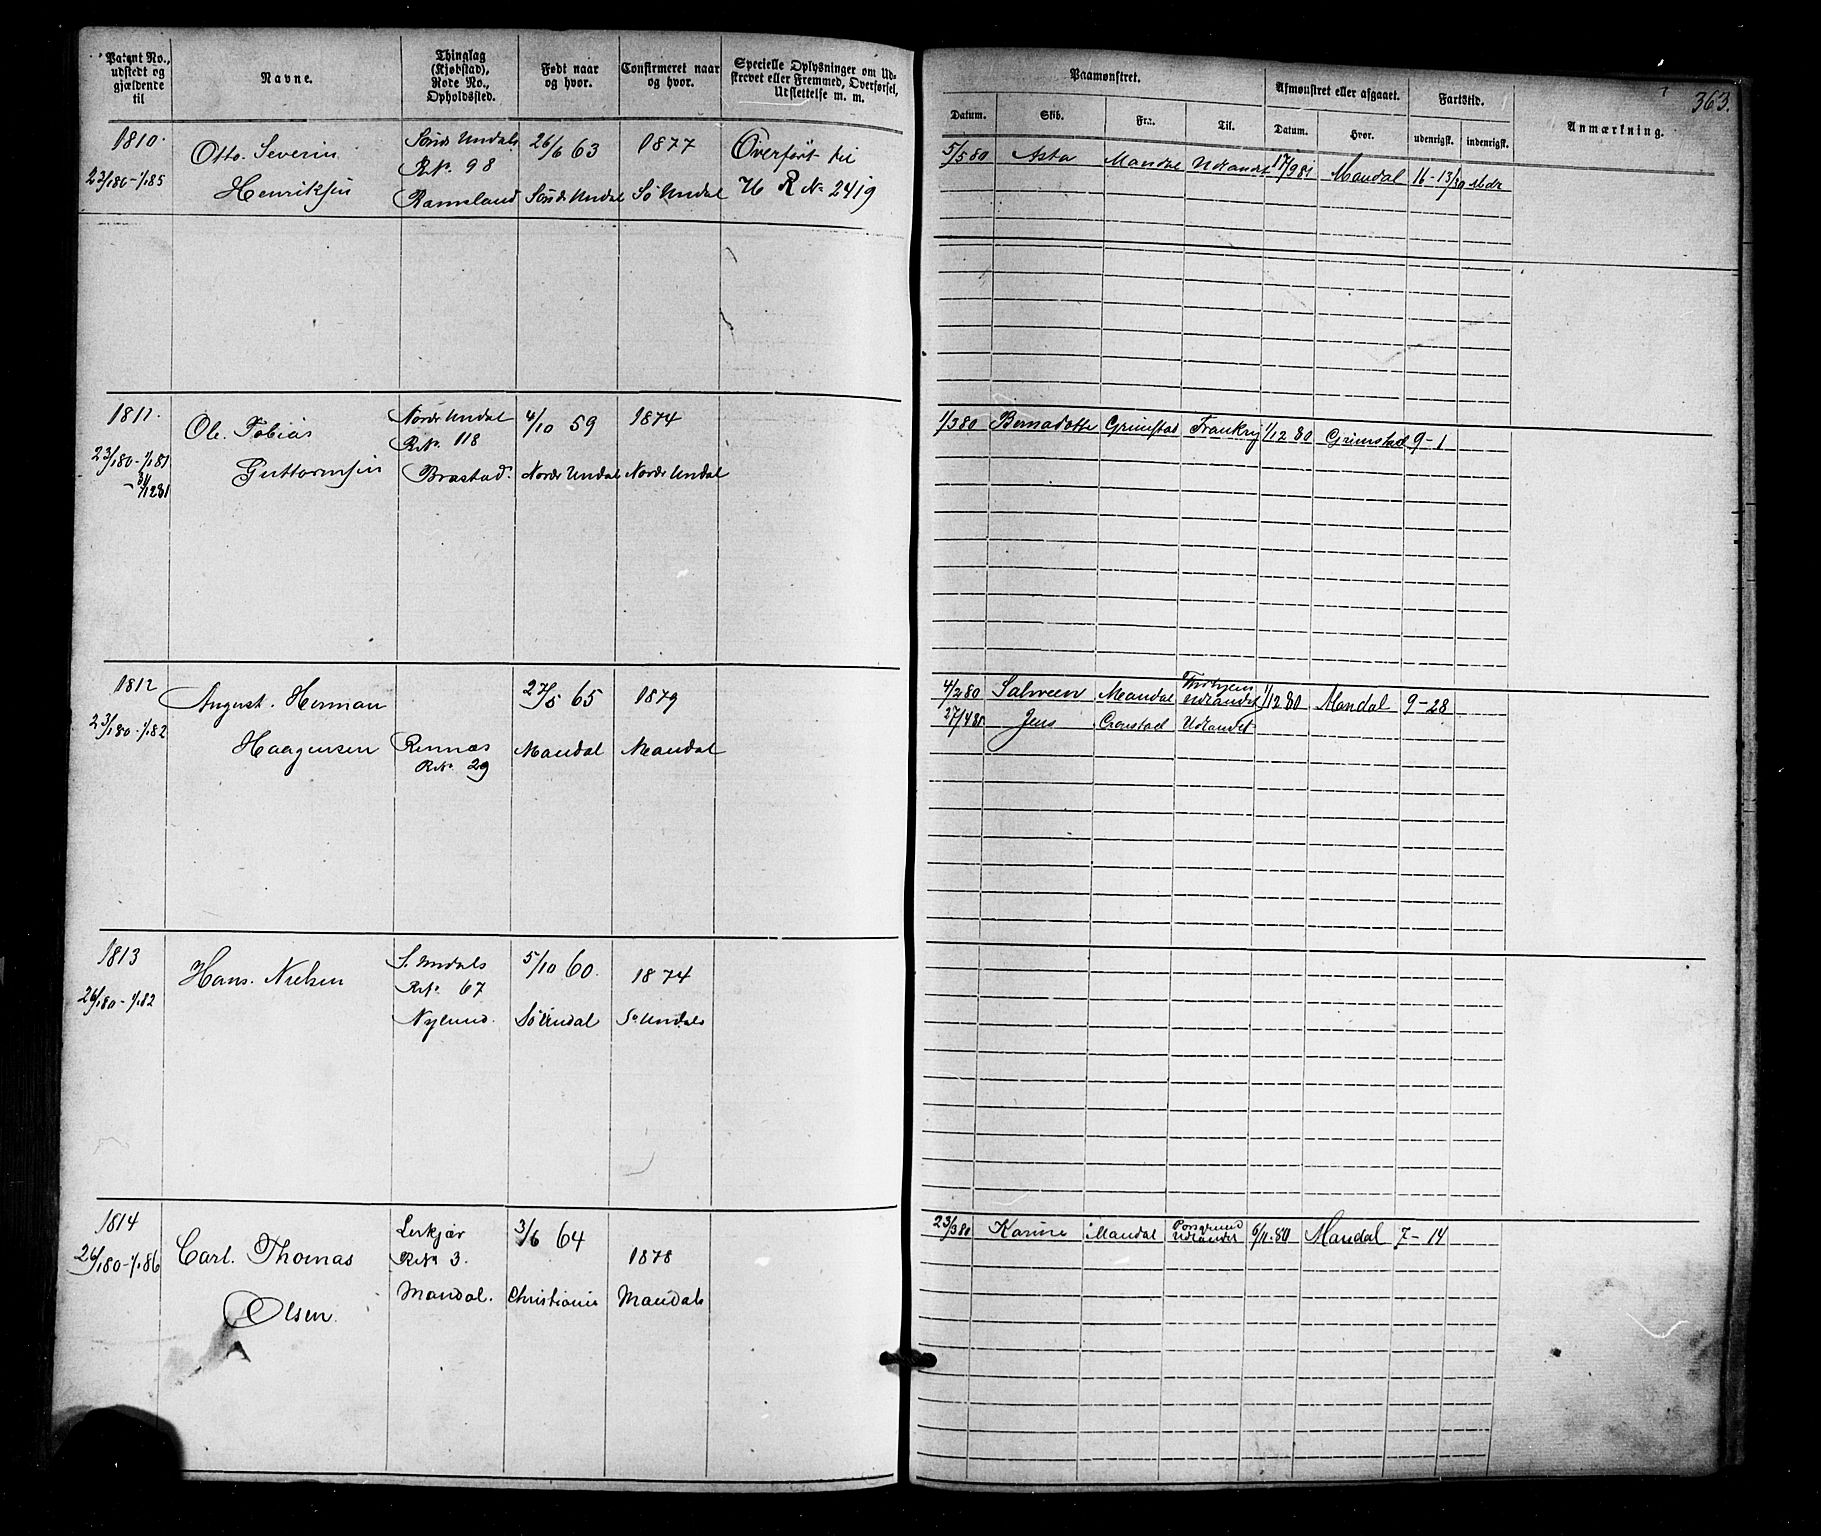 363.
Patent No., udstedt og gjældende til
Navne.
Thinglag (Kjøbstad), Rode No., Opholdssted.
Født naar og hvor.
Confirmeret naar og hvor.
Specielle Oplysninger om Udskrevet eller Fremmed, Overførsel, Udslettelse m. m.
Paamønstret.
Afmønstret eller afgaaet.
Fartstid.
Anmærkning.
Datum. Skib. Fra. Til. Datum. Hvor. udenrigsk. indenrigsk.
1810. Otto Severin Søndr Undals 26/6 63 1877 Overført til 5/5 80 Asta Mandal Udlandet 17/9 81 Mandal 16-13/30 Mdr
R.No. 98
23/1 80 - 1/1 85 Henriksen Ramsland Søndr Undal Sø Undal H R No 2419
1811. Ole Tobias Nordr Undal 4/10 59 1874 1/3 80 Bernadotte Grimstad Frankrig 1/12 80 Grimstad 9-1
R.No. 118
23/1 80 - 1/1 81 Guttormsen Brastad. Nordr Undal Nordr Undal
- 31/12 81
1812 August Herman 27/5 65 1879 4/2 80 Salveen Mandal Udlandet 1/12 80 Mandal 9-28
23/1 80 - 1/1 82 27/4 81 Jens Cronstad Udlandet
Haagensen Rennæs Mandal Mandal
R.No. 29
1813 Hans Nielsen S. Undals 5/10 60. 1874
R.No. 67
26/1 80 - 1/1 82 Nylund. Sø Undal Sø Undals
1814 Carl Thomas Lerkjær 3/6 64 1878 23/3 80 Karine Mandal Porsgrund Udlandet 6/11 80 Mandal 7-14
R.No. 3.
26/1 80 - 1/1 86 Olsen. Mandal. Christiania Mandals